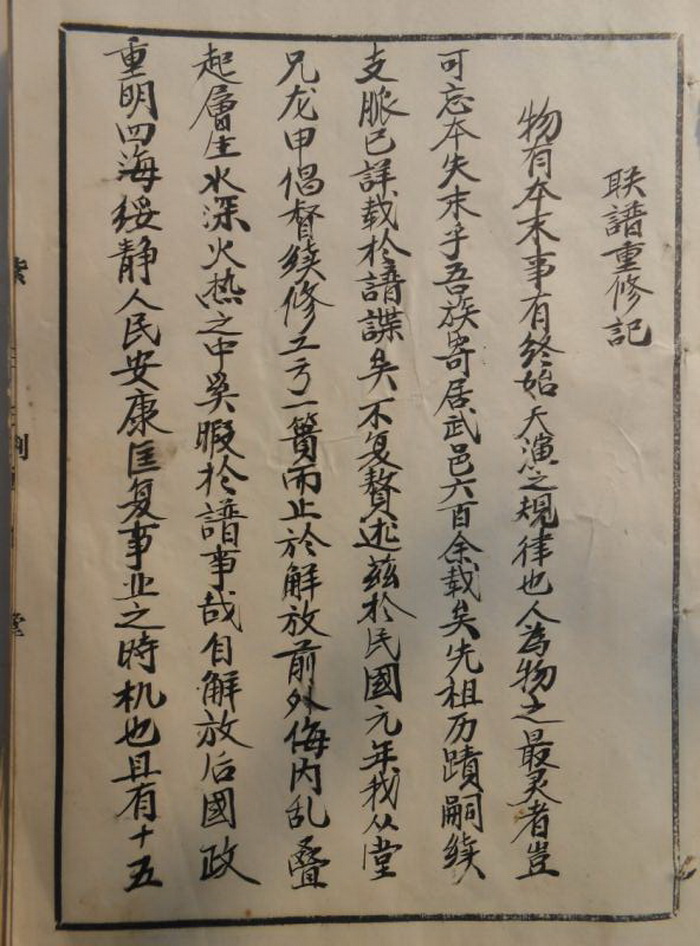 联譜重修记
物有本末事有终始天演之规律也人為物之最灵者豈
可忘本失末乎吾族寄居武邑六百余载矣先祖历蹟嗣续
支脈已詳载於譜諜矣不复贅述兹於民國元年我从堂
兄龙甲倡督续修工亏一簣而止於解放前外侮内乱叠
起層生水深火热之中奚暇於譜事哉自解放后國政
重明四海绥静人民安康匡复事业之時机也且有十五